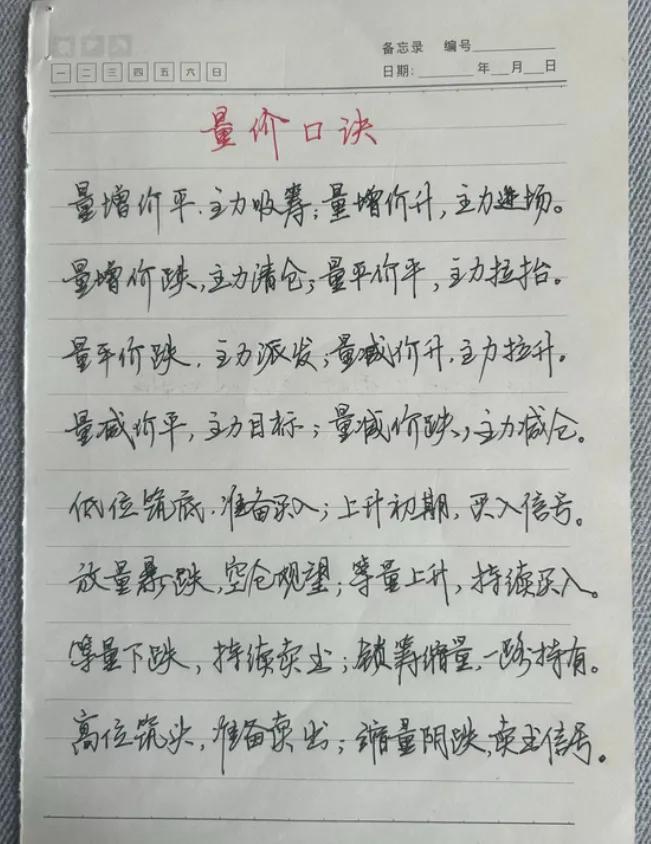 备忘录 编号
一 二 三 四 五 六 日
日期: 年 月 日
量价口诀
量增价平,主力吸筹;量增价升,主力进场。
量增价跌,主力清仓;量平价平,主力拉抬。
量平价跌,主力派发;量减价升,主力拉升。
量减价平,主力目标;量减价跌,主力减仓。
低位筑底,准备买入;上升初期,买入信号。
放量暴跌,空仓观望;等量上升,持续买入。
等量下跌,持续卖出;锁筹缩量,一路持有。
高位筑头,准备卖出;缩量阴跌,卖出信号。